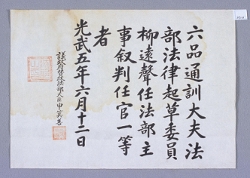 六品通訓大夫法
部法律起草委員
柳遠聲任法部主
事叙判任官一等
者
光武五年六月十二日